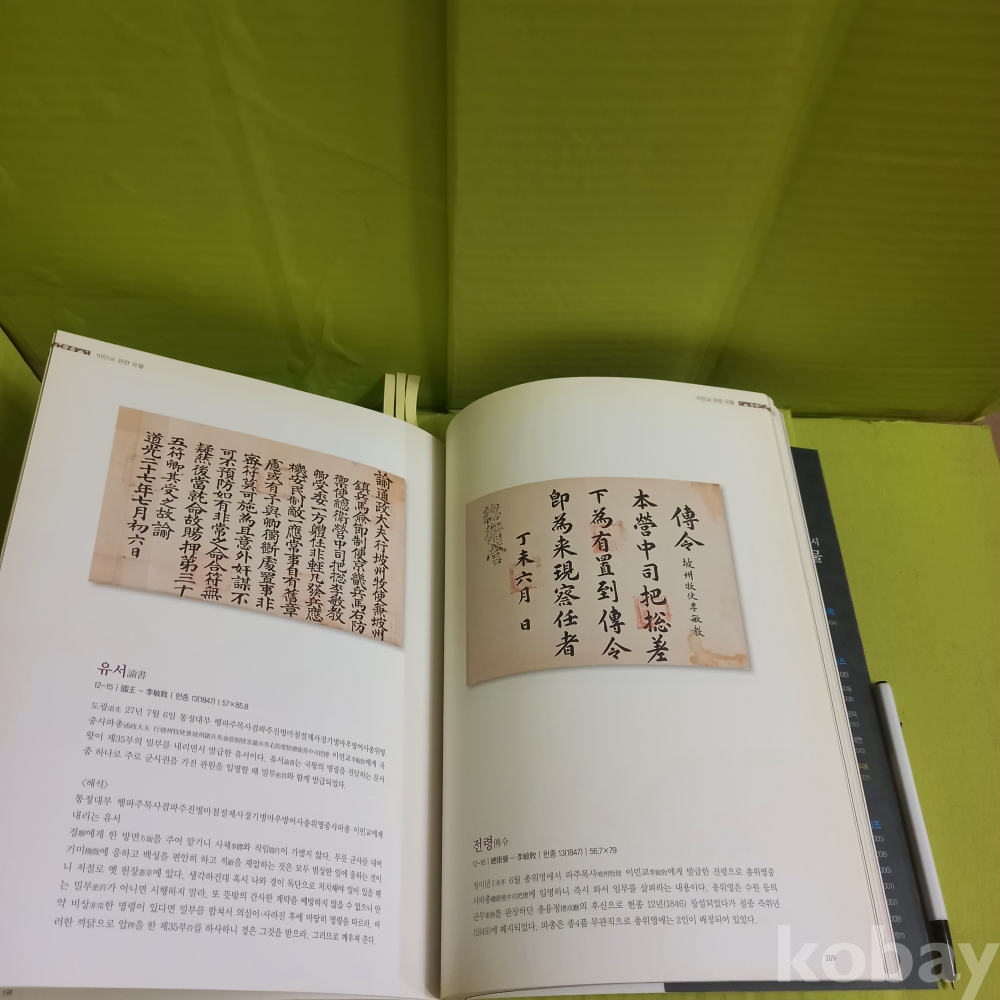 이민교 관련 유물
諭通政大夫行坡州牧使兼坡州
鎭兵馬僉節制使京畿兵馬右防
禦使總衛營中司把摠李敏敎
卿受委一方體任非輕凡發兵應
機安民制敵一應常事自有舊章
慮或有予與卿獨斷處置事非
密符莫可施爲且意外奸謀不
可不預防如有非常之命合符無
疑然後當就命故賜押第三十
五符卿其受之故諭
道光二十七年七月初六日
유서諭書
12-15 | 國王 → 李敏敎 | 헌종 13(1847) | 57×85.8
도광道光 27년 7월 6일 통정대부 행파주목사겸파주진병마첨절제사경기병마우방어사총위영
중사파총 이민교李敏敎에게 국
왕이 제35부의 밀부를 내리면서 발급한 유서이다. 유서諭書는 국왕의 명령을 전달하는 문서
중 하나로 주로 군사권을 가진 관원을 임명할 때 밀부密符와 함께 발급되었다.
〈해석〉
통정대부 행파주목사겸파주진병마첨절제사경기병마우방어사총위영중사파총 이민교에게
내리는 유서
경卿에게 한 방면方面을 주어 맡기니 사체事體와 직임職任이 가볍지 않다. 무릇 군사를 내어
기미機微에 응하고 백성을 편안히 하고 적敵을 제압하는 것은 모두 범상한 일에 응하는 것이
니 저절로 옛 헌장憲章에 있다. 생각하건대 혹시 나와 경이 독단으로 처치해야 일이 있을 때
는 밀부密符가 아니면 시행하지 말라. 또 뜻밖의 간사한 계략을 예방하지 않을 수 없으니 만
약 비상非常한 명령이 있다면 밀부를 합쳐서 의심이 사라진 후에 마땅히 명령을 따르라. 이
러한 까닭으로 압押을 한 제35부符를 하사하니 경은 그것을 받으라. 그러므로 깨우쳐 준다.
198
이민교 관련 유물
傳令 坡州牧使李敏敎
本營中司把摠差
下爲有置到傳令
卽爲来現察任者
丁未六月 日
總衛營
전령傳令
12-16 | 總衛營 → 李敏敎 | 헌종 13(1847) | 56.7×79
정미년丁未年 6월 총위영에서 파주목사坡州牧使 이민교李敏敎에게 발급한 전령으로 총위영중
사파총總衛營中司把摠에 임명하니 즉시 와서 임무를 살피라는 내용이다. 총위영은 수원 등의
군무軍務를 관장하던 총융청摠戎廳의 후신으로 헌종 12년(1846) 창설되었다가 철종 즉위년
(1849)에 폐지되었다. 파총은 종4품 무관직으로 총위영에는 2인이 배정되어 있었다.
209
kobay